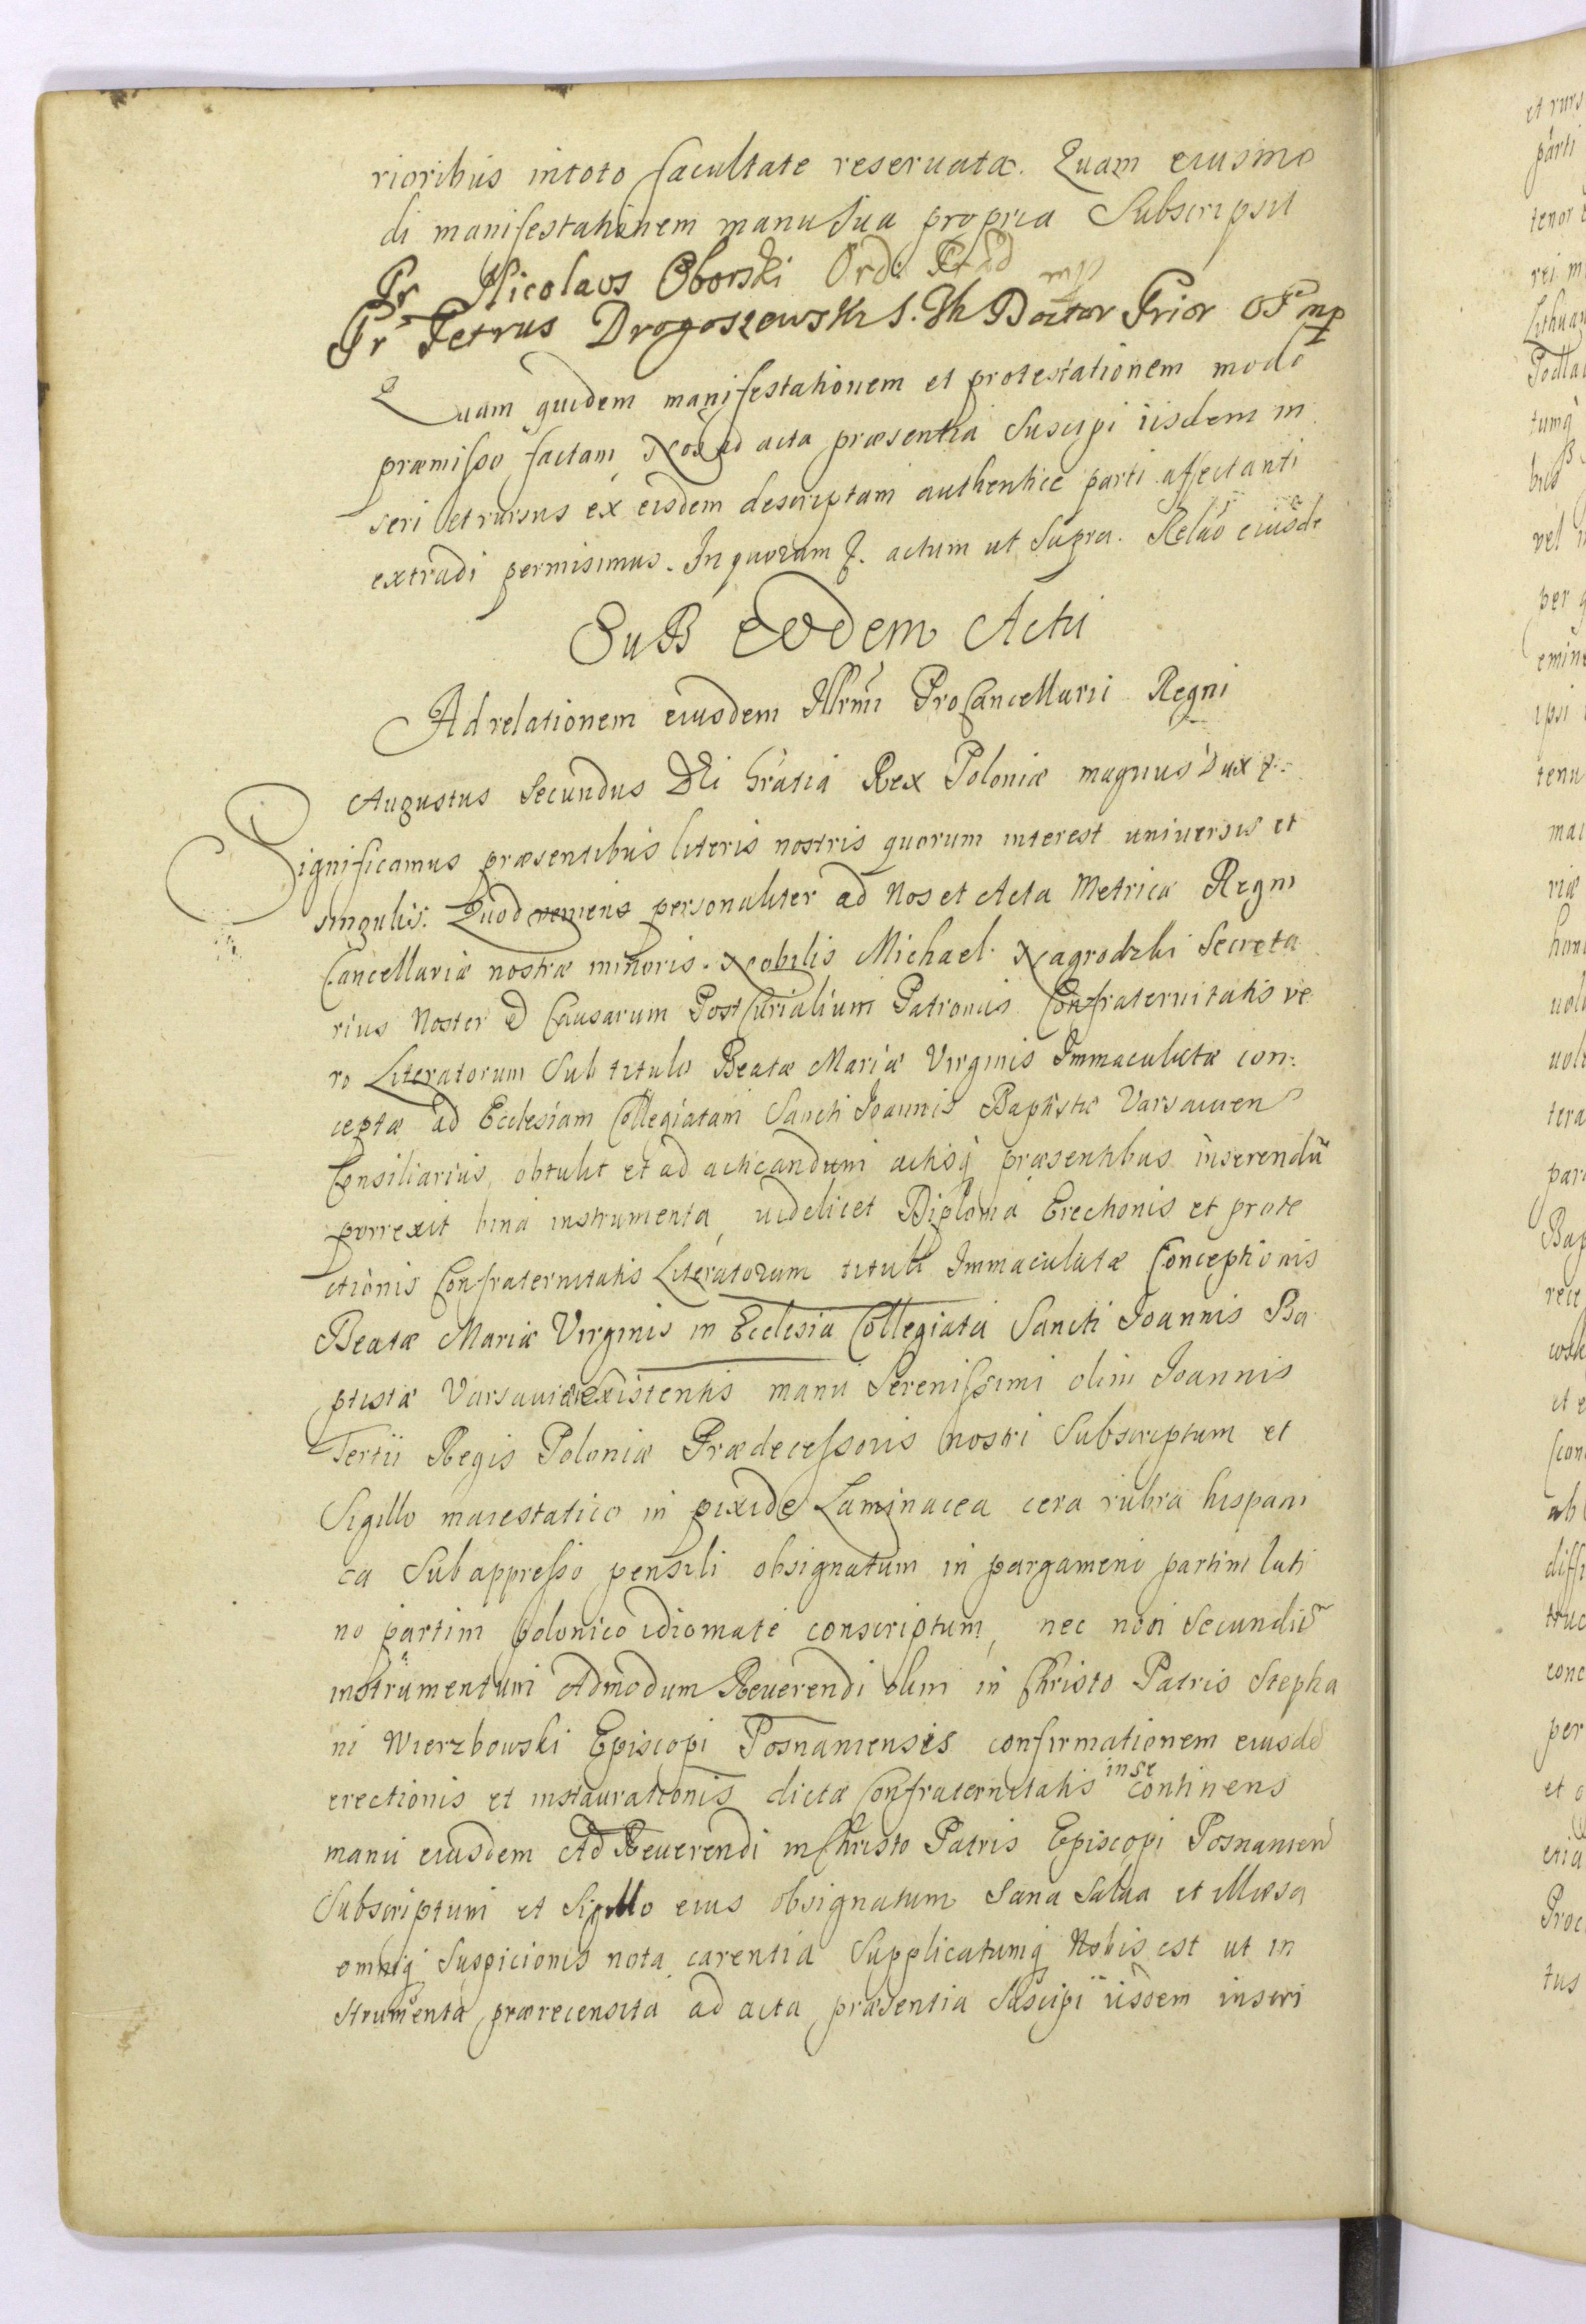 rioribus intoto facultate reseruata. Quam eiusmo
di manifestationem manu sua propria Subscripsit
Fr Nicolaus Oborski Ord: Præd mp
Fr Petrus Drogoszewski S. Th Doctor Prior OP mp
Quam quidem manifestationem et protestationem modo
præmisso factam, Nos ad acta præsentia Suscipi iisdem in
seri et rursus ex eisdem descriptam authentice parti affectanti
extradi permisimus. In quorum &. actum ut Supra. Relao eiusde
SuB Eodem Actu
Ad relationem eiusdem Illrmi ProCancellarii Regni
Augustus Secundus Dei Gratia Rex Poloniæ magnus Dux &:
Significamus præsentibus literis nostris quorum interest uniuersis et
singulis: Quod veniens personaliter ad Nos et Acta Metricæ Regni
Cancellariæ nostræ minoris. Nobilis Michael Nagrodzki Secreta
rius Noster & Causarum PostCurialium Patronus Confraternitatis ve
ro Literatorum Sub titulo Beatæ Mariæ Virginis Immaculatæ con:
ceptæ ad Ecclesiam Collegiatam Sancti Joannis Baptistæ Varsauien
Consiliarius, obtulit et ad acticandum actisq præsentibus inserendu
porrexit bina instrumenta, uidelicet Diploma Erectionis et prote
ctionis Confraternitatis Literatorum tituli Immaculatæ Conceptionis
Beatæ Mariæ Virginis in Ecclesia Collegiata Sancti Joannis Ba
ptistæ Varsauiæ existentis manu Serenissimi olim Joannis
Tertii Regis Poloniæ Prædecessoris nostri Subscriptum et
Sigillo maiestatico in pixide Laminacea cera rubra hispani
ca Sub appresso pensili obsignatum in pargameno partim lati
no partim polonico idiomate conscriptum, nec non Secundu
instrumentum Admodum Reuerendi olim in Christo Patris Stepha
ni Wierzbowski Episcopi Posnaniensis confirmationem eiusde
erectionis et instaurationis dictæ Confraternitatis in se continens
manu eiusdem Ad Reuerendi in Christo Patris Episcopi Posnanien
Subscriptum et Sigillo eius obsignatum Sana Salua et illæsa
omniq Suspicionis nota carentia Supplicatumq Nobis est ut in
strumenta prærecensita ad acta præsentia Suscipi iisdem inseri